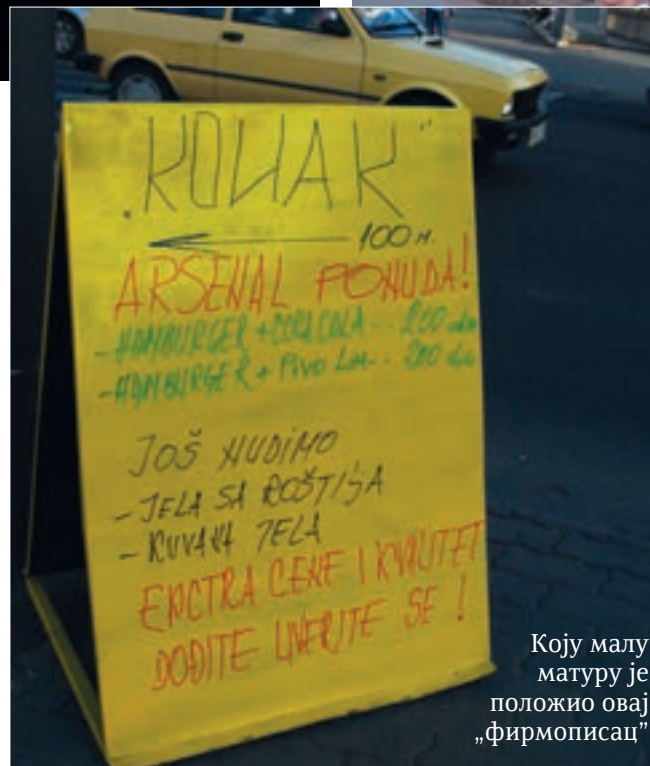 „KOЏAK”
100 м.
ARSENAL POHUDA!
-HAMBURGER + COCA COLA -- 200 din
-HAMBURGER + Pivo -- 200 din
JOŠ NUDIMO
- JELA SA
- KUVANA JELA
EKCTRA CENE I KVALITET
DOĐITE UVERITE SE !
Коју малу
матуру је
положио овај
„фирмописац”